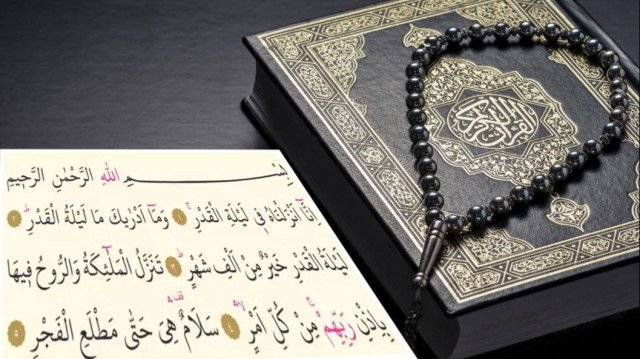 القرآن الكريم
بِسْمِ اللهِ الرَّحْمٰنِ الرَّحٖيمِ
اِنَّٓا اَنْزَلْنَاهُ فٖى لَيْلَةِ الْقَدْرِۚ ١ وَمَٓا اَدْرٰيكَ مَا لَيْلَةُ الْقَدْرِؕ ٢
لَيْلَةُ الْقَدْرِ خَيْرٌ مِنْ اَلْفِ شَهْرٍؕ ٣ تَنَزَّلُ الْمَلٰٓئِكَةُ وَالرُّوحُ فٖيهَا
بِاِذْنِ رَبِّهِمْۚ مِنْ كُلِّ اَمْرٍۙ ٤ سَلَامٌ هِىَ حَتّٰى مَطْلَعِ الْفَجْرِ ٥